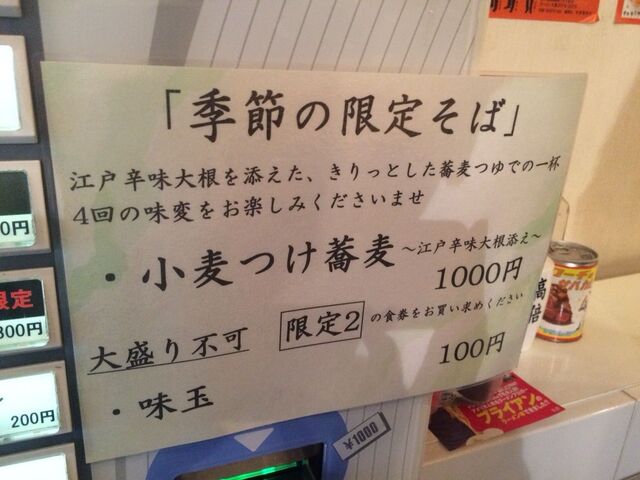 「季節の限定そば」
江戸辛味大根を添えた、きりっとした蕎麦つゆでの一杯
4回の味変をお楽しみくださいませ
・小麦つけ蕎麦 ～江戸辛味大根添え～
1000円
限定2 の食券をお買い求めください
大盛り不可
・味玉
100円
0円
限定
300円
200円
1000
高倍
フライアン